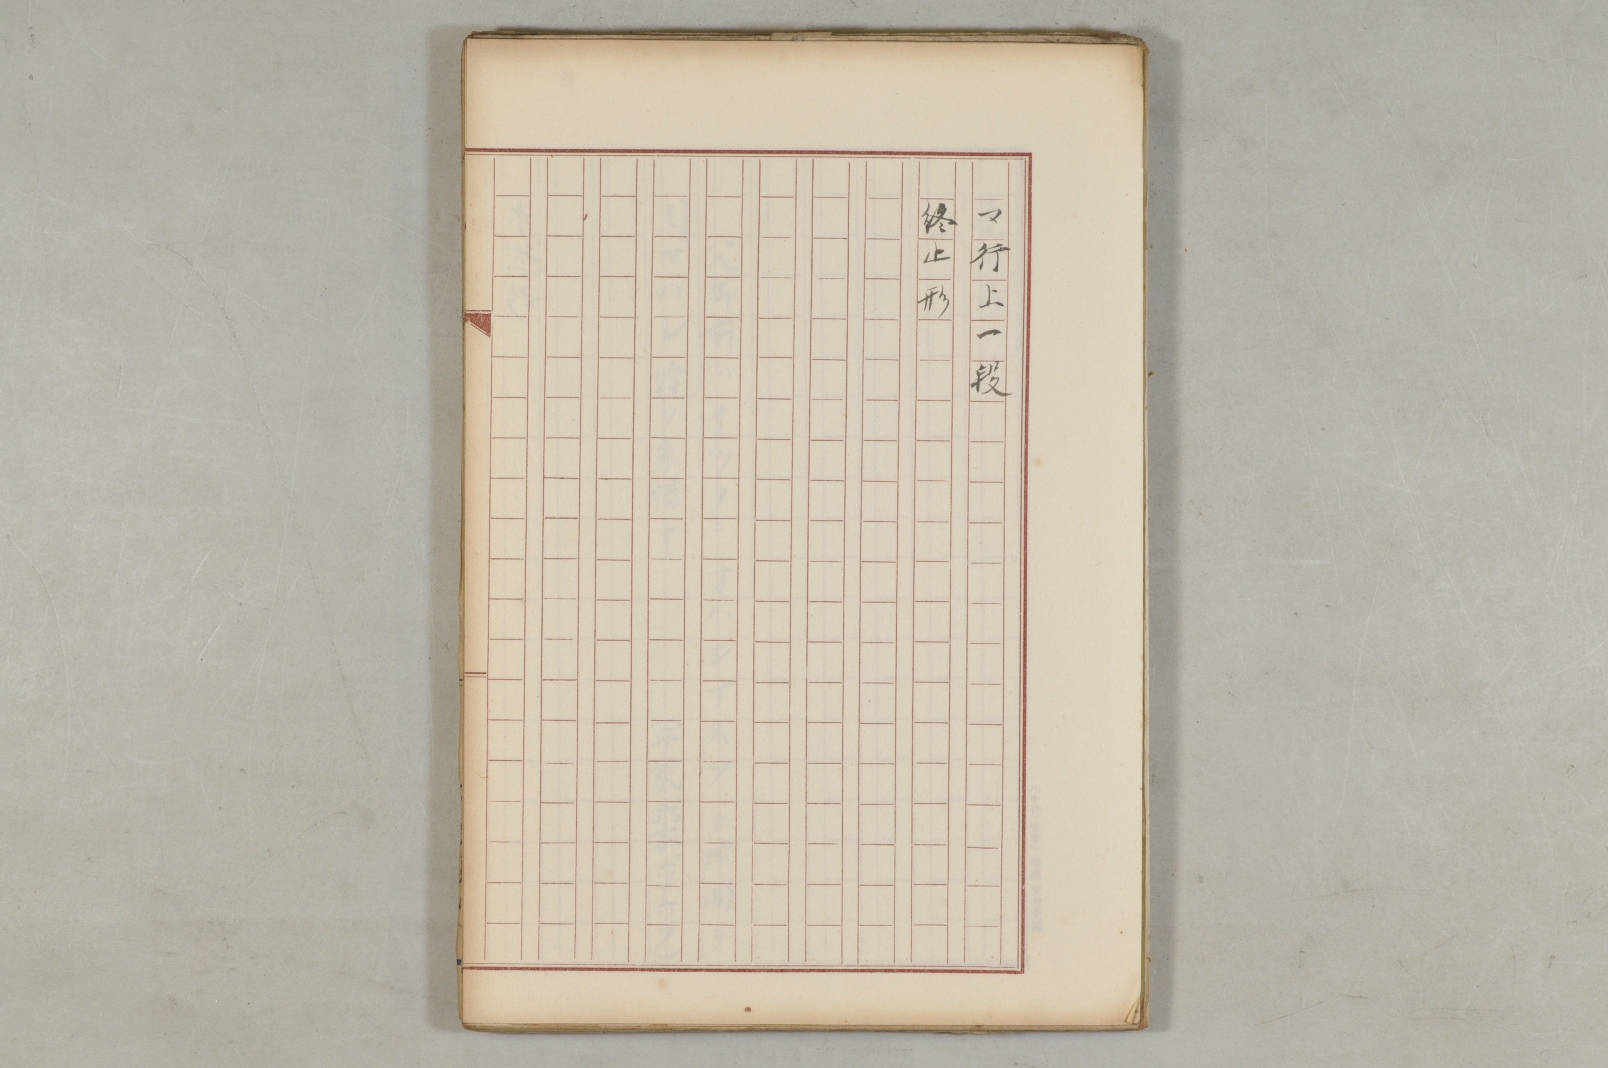 マ行上一段
終止形